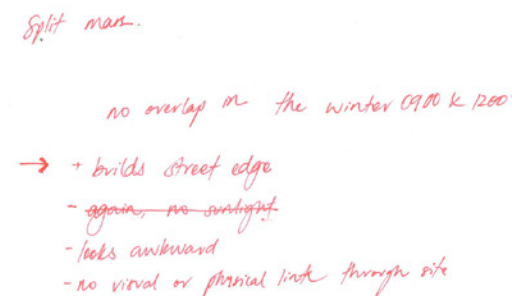 Split mass.
no overlap in the winter 0900 & 1200
→ + builds street edge
- again, no sunlight
- looks awkward
- no visual or physical link through site